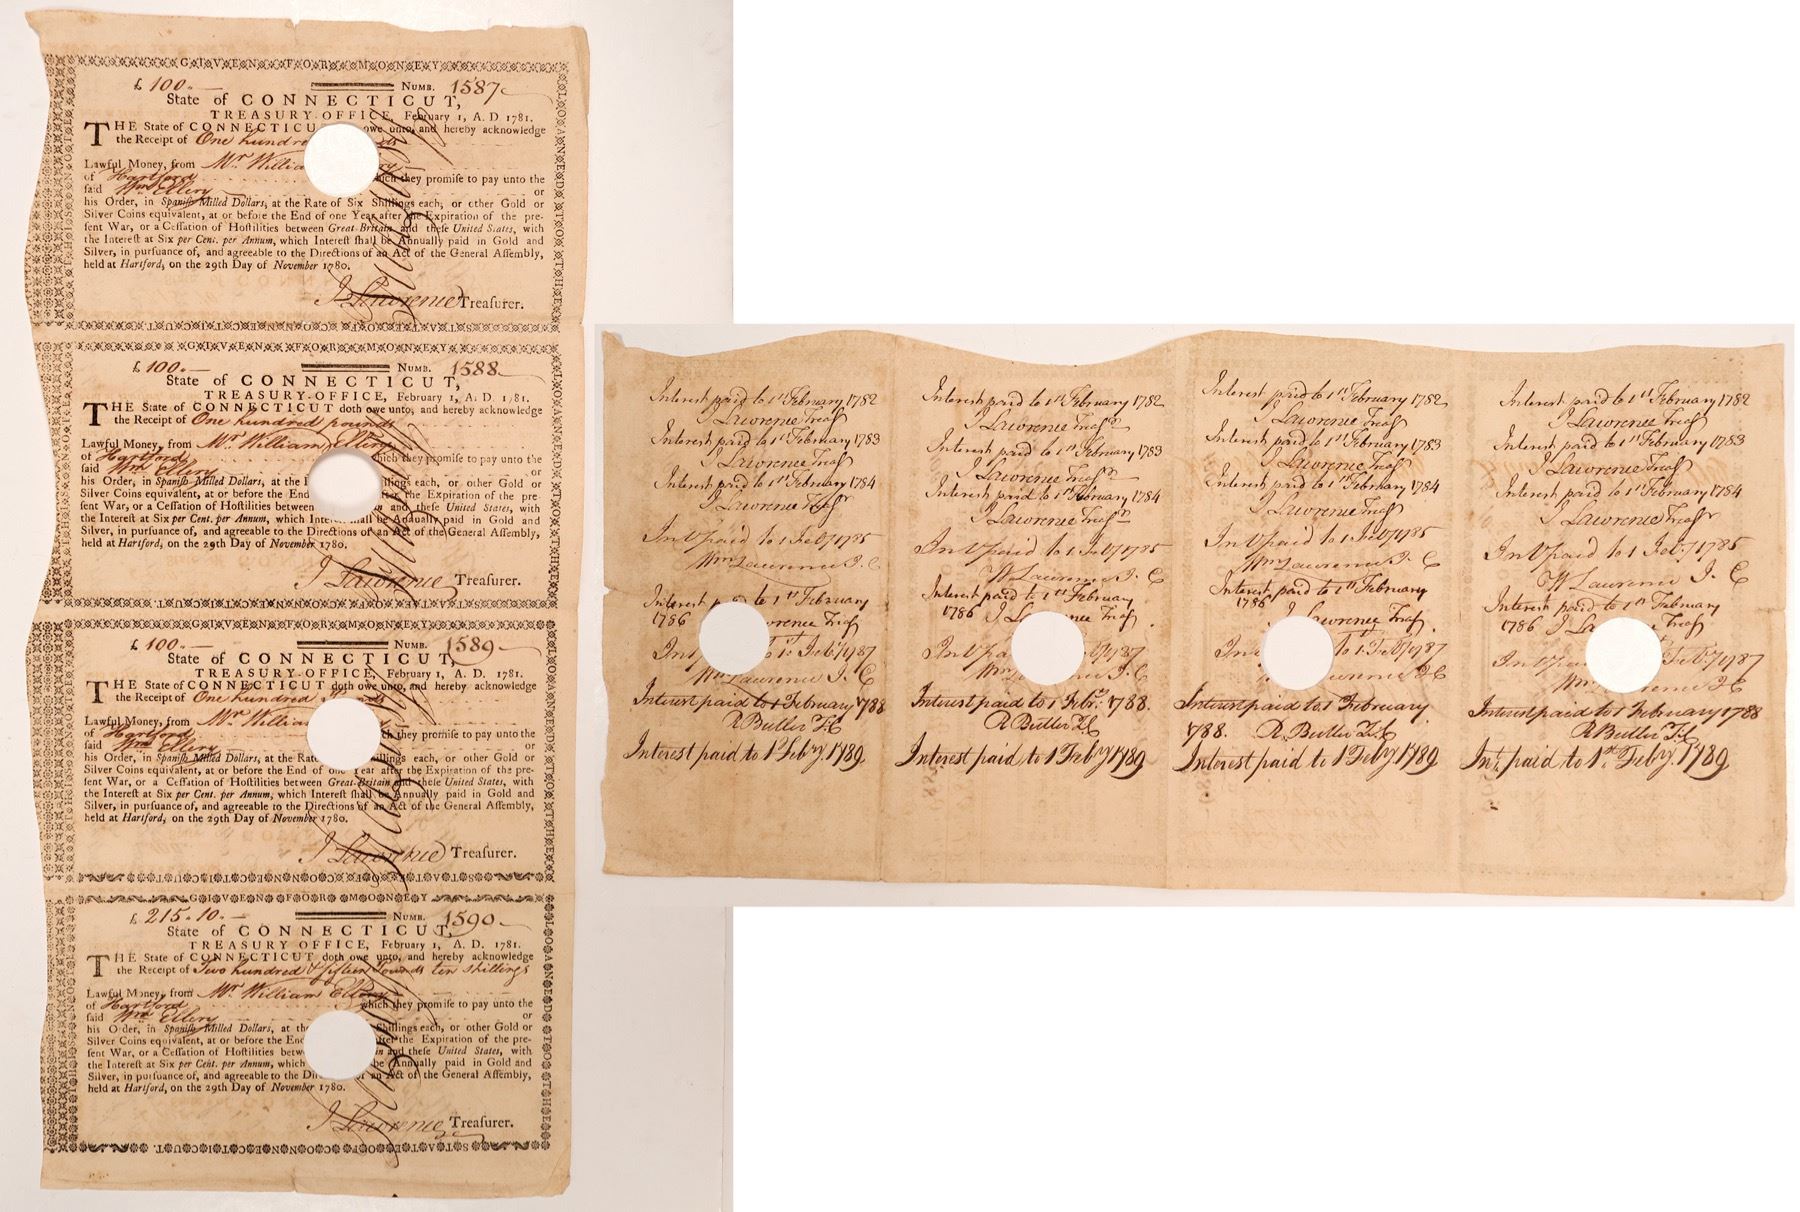 GIVEN FOR MONEY
LOANED TO THE
STATE OF CONNECTICUT.
£ 100 „ — NUMB. 1587
State of CONNECTICUT,
TREASURY-OFFICE, February 1, A. D 1781.
THE State of CONNECTICU owe unto, and hereby acknowledge
the Receipt of One hundre
Lawful Money, from Mr. Willia
of Hartford which they promise to pay unto the
said Wm Ellery or
his Order, in Spanish Milled Dollars, at the Rate of Six Shillings each, or other Gold or
Silver Coins equivalent, at or before the End of one Year after the Expiration of the pre-
sent War, or a Cessation of Hostilities between Great-Britain and these United States, with
the Interest at Six per Cent. per Annum, which Interest shall be Annually paid in Gold and
Silver, in pursuance of, and agreeable to the Directions of an Act of the General Assembly,
held at Hartford, on the 29th Day of November 1780.
J Lawrence Treasurer.
GIVEN FOR MONEY
LOANED TO THE
STATE OF CONNECTICUT.
£ 100 „ — NUMB. 1588
State of CONNECTICUT,
TREASURY-OFFICE, February 1, A. D. 1781.
THE State of CONNECTICUT doth owe unto, and hereby acknowledge
the Receipt of One hundred pounds
Lawful Money, from Mr. William Ellery
of Hartford which they promise to pay unto the
said Wm Ellery or
his Order, in Spanish Milled Dollars, at the illings each, or other Gold or
Silver Coins equivalent, at or before the End after the Expiration of the pre-
sent War, or a Cessation of Hostilities between n and these United States, with
the Interest at Six per Cent. per Annum, which Inter shall be Annually paid in Gold and
Silver, in pursuance of, and agreeable to the Directions of an Act of the General Assembly,
held at Hartford, on the 29th Day of November 1780.
J Lawrence Treasurer.
GIVEN FOR MONEY
LOANED TO THE
STATE OF CONNECTICUT.
£ 100 „ — NUMB. 1589
State of CONNECTICUT,
TREASURY-OFFICE, February 1, A. D. 1781.
THE State of CONNECTICUT doth owe unto, and hereby acknowledge
the Receipt of One hundred
Lawful Money, from Mr. William
of Hartford ch they promise to pay unto the
said Wm Ellery or
his Order, in Spanish Milled Dollars, at the Rate illings each, or other Gold or
Silver Coins equivalent, at or before the End of one Year after the Expiration of the pre-
sent War, or a Cessation of Hostilities between Great-Britain and these United States, with
the Interest at Six per Cent. per Annum, which Interest shall be Annually paid in Gold and
Silver, in pursuance of, and agreeable to the Directions of an Act of the General Assembly,
held at Hartford, on the 29th Day of November 1780.
J Lawrence Treasurer.
GIVEN FOR MONEY
LOANED TO THE
STATE OF CONNECTICUT.
£ 215 „ 10 „ — NUMB. 1590
State of CONNECTICUT,
TREASURY OFFICE, February 1, A. D. 1781.
THE State of CONNECTICUT doth owe unto, and hereby acknowledge
the Receipt of Two hundred & fifteen Pounds ten shillings
Lawful Money, from Mr. William Ellery
of Hartford which they promise to pay unto the
said Wm Ellery or
his Order, in Spanish Milled Dollars, at th Shillings each, or other Gold or
Silver Coins equivalent, at or before the End after the Expiration of the pre-
sent War, or a Cessation of Hostilities betw in and these United States, with
the Interest at Six per Cent. per Annum, which be Annually paid in Gold and
Silver, in pursuance of, and agreeable to the Di of an Act of the General Assembly,
held at Hartford, on the 29th Day of November 1780.
J Lawrence Treasurer.
Interest paid to 1st February 1782
J Lawrence Treasr
Interest paid to 1st February 1783
J Lawrence Treasr
Interest paid to 1st February 1784
J Lawrence Treasr
Int paid to 1 Feby 1785
Wm Lawrence J. C
Interest p to 1st February
1786 wrence Treasr
Int 1st Feby 1787
Wm Lawrence J. C
Interest paid to 1 February 1788
R Butler J C
Interest paid to 1st Feby 1789
Interest paid to 1st February 1782
J Lawrence Treasr
Interest paid to 1st February 1783
J Lawrence Treasr
Interest paid to 1st February 1784
J Lawrence Treasr
Int paid to 1 Feby 1785
W Lawrence J. C
Interest paid to 1st February
1786 J Law nce Treasr
Int pa by 1787
Wm rence J. C
Interest paid to 1 Febr. 1788.
R Butler J C
Interest paid to 1 Feby 1789
Interest paid to 1st February 1782
J Lawrence Treasr
Interest paid to 1st February 1783
J Lawrence Treasr
Interest paid to 1st February 1784
J Lawrence Treasr
Int paid to 1 Feby 1785
Wm Lawrence J. C
Interest paid to 1st February
1786 J Lawrence Treasr
Int to 1st Feby 1787
wrence J C
Interest paid to 1 February
1788. R Butler J C
Interest paid to 1 Feby 1789
Interest paid to 1st February 1782
J Lawrence Treasr
Interest paid to 1st February 1783
J Lawrence Treasr
Interest paid to 1st February 1784
J Lawrence Treasr
Int paid to 1 Feby 1785
W Lawrence J. C
Interest paid to 1st February
1786 J La Treasr
Int paid Feby 1787
Wm rence J C
Interest paid to 1 February 1788
R Butler J C
Int. paid to 1st Feby. 1789